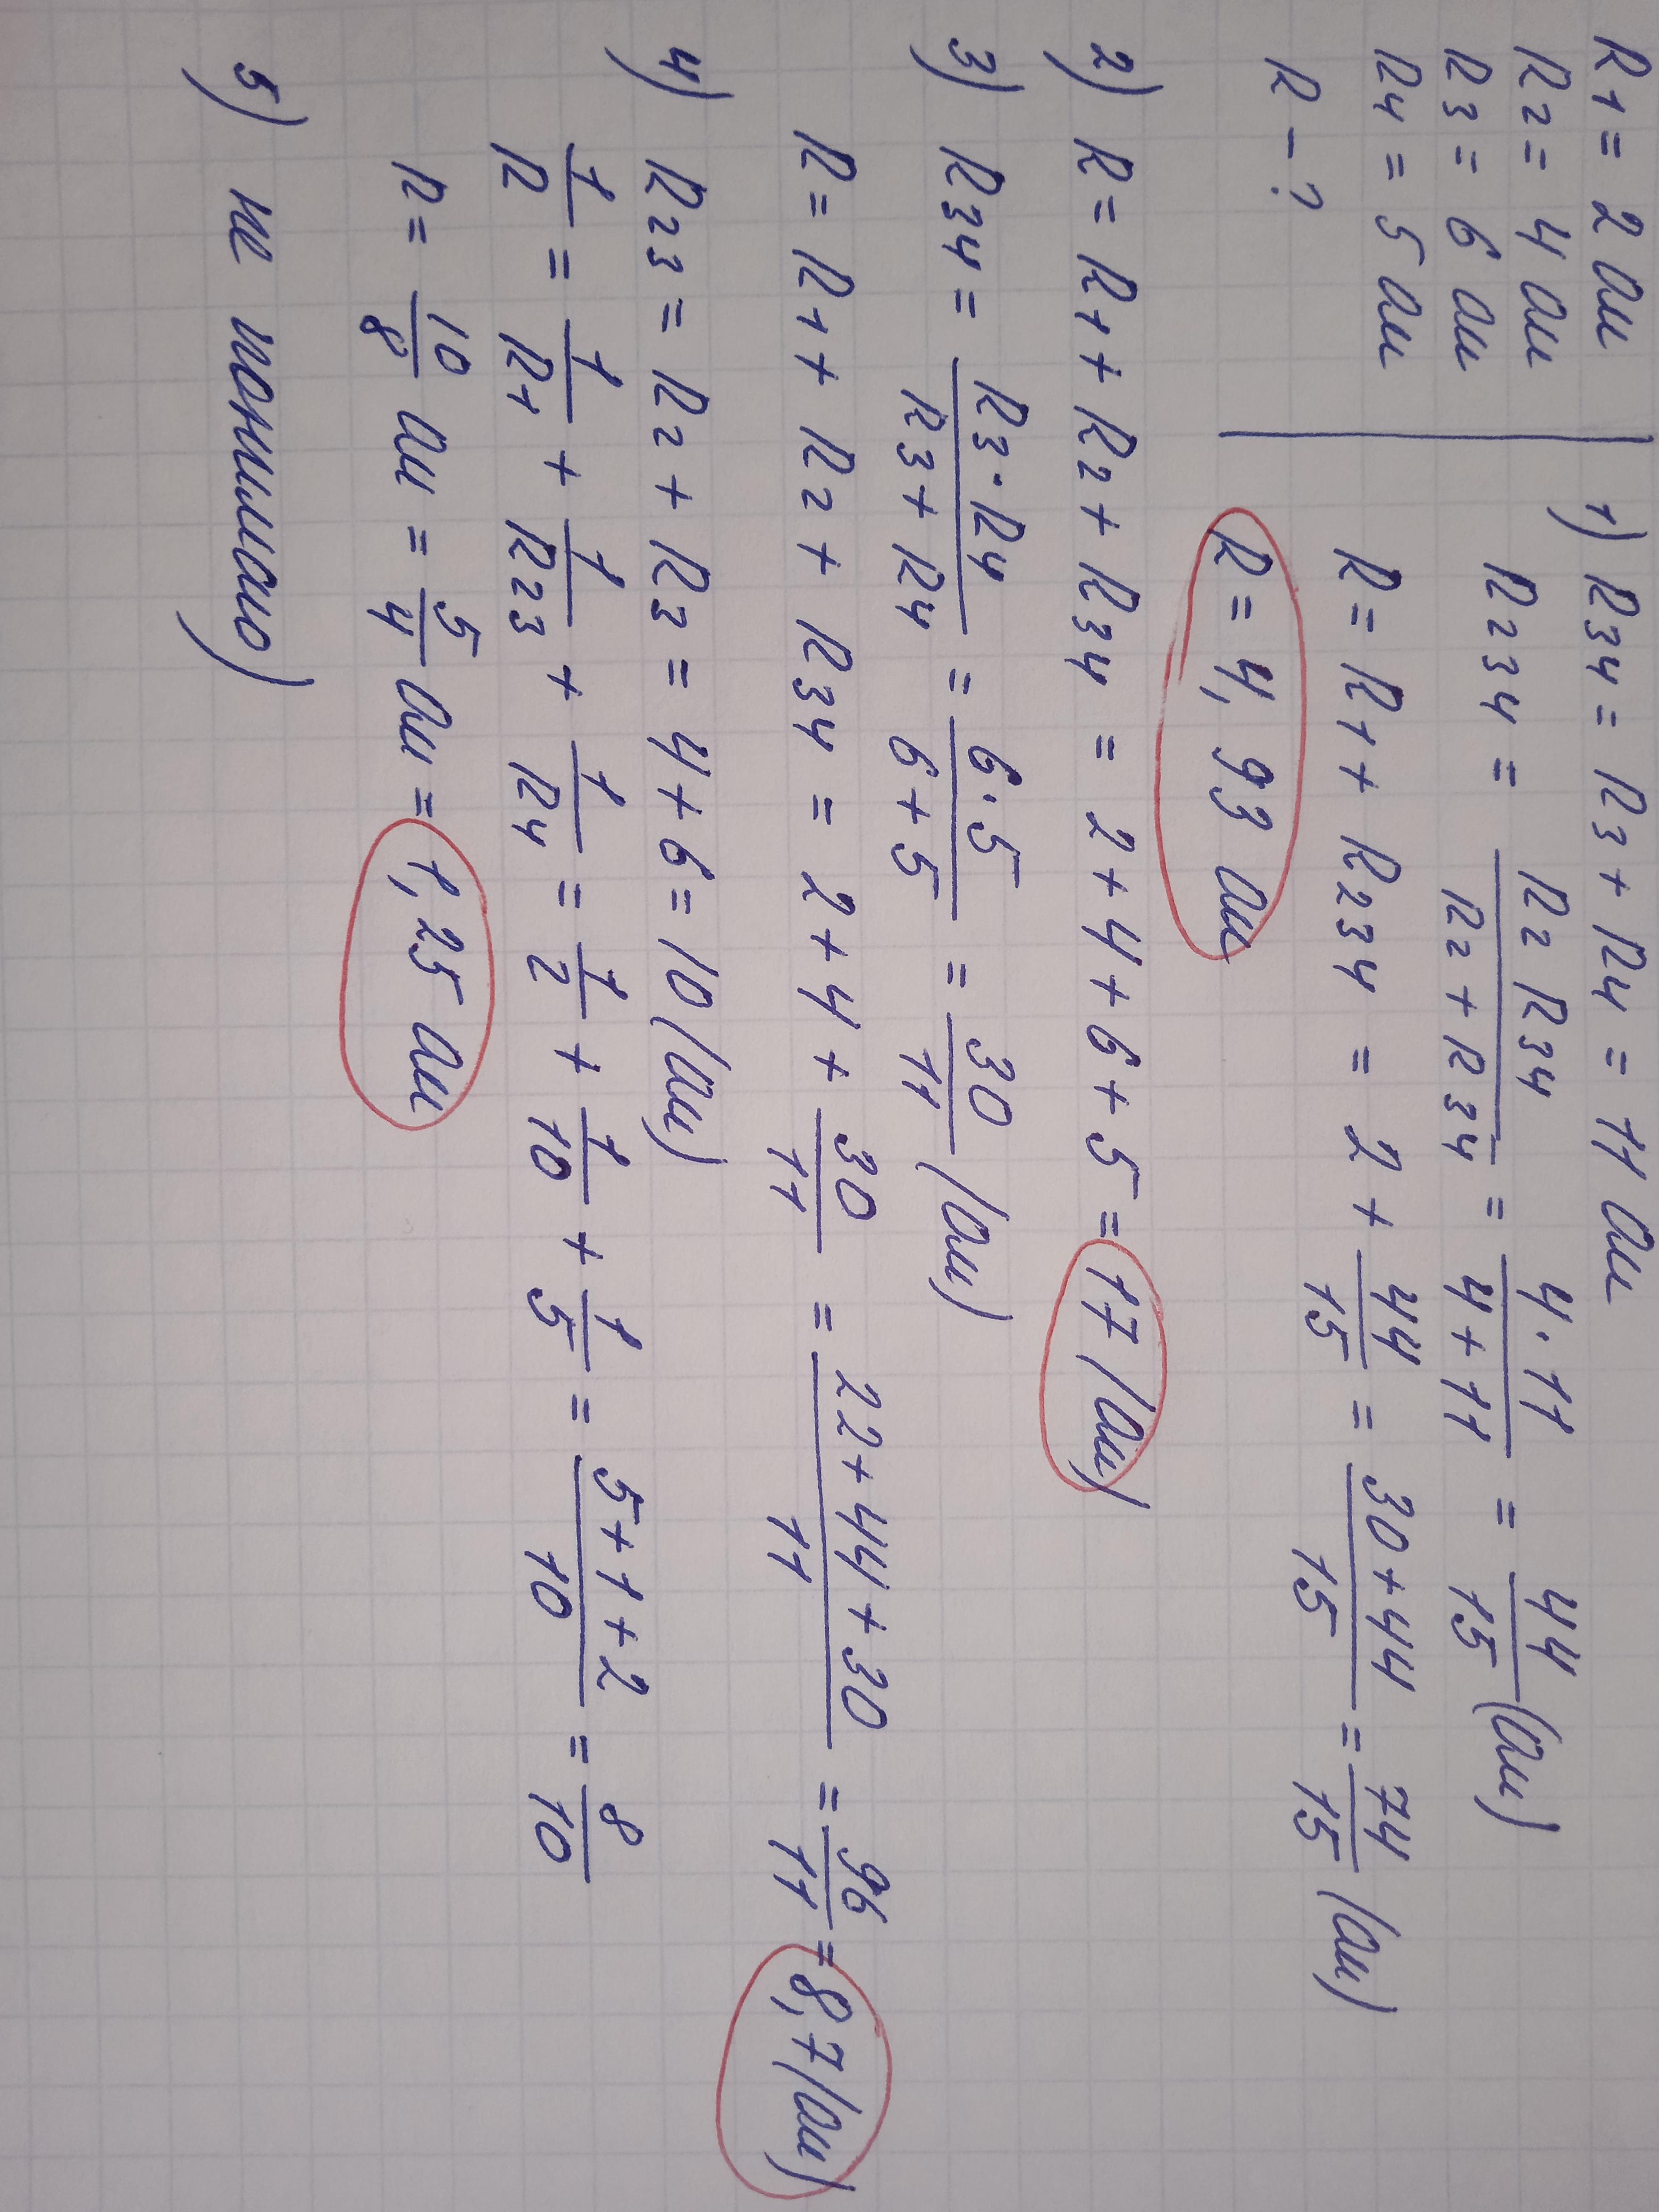 R1 = 2 Ом
R2 = 4 Ом
R3 = 6 Ом
R4 = 5 Ом
R – ?
1) R34 = R3 + R4 = 11 Ом
R234 = R2 R34 / R2 + R34 = 4·11 / 4+11 = 44/15 (Ом)
R = R1 + R234 = 2 + 44/15 = 30+44 / 15 = 74/15 (Ом)
R = 4,93 Ом
2) R = R1 + R2 + R34 = 2+4+6+5 = 17 (Ом)
3) R34 = R3·R4 / R3 + R4 = 6·5 / 6+5 = 30/11 (Ом)
R = R1 + R2 + R34 = 2+4+ 30/11 = 22+44+30 / 11 = 96/11 = 8,7 (Ом)
4) R23 = R2 + R3 = 4+6 = 10 (Ом)
1/R = 1/R1 + 1/R23 + 1/R4 = 1/2 + 1/10 + 1/5 = 5+1+2 / 10 = 8/10
R = 10/8 Ом = 5/4 Ом = 1,25 Ом
5) не понимаю)